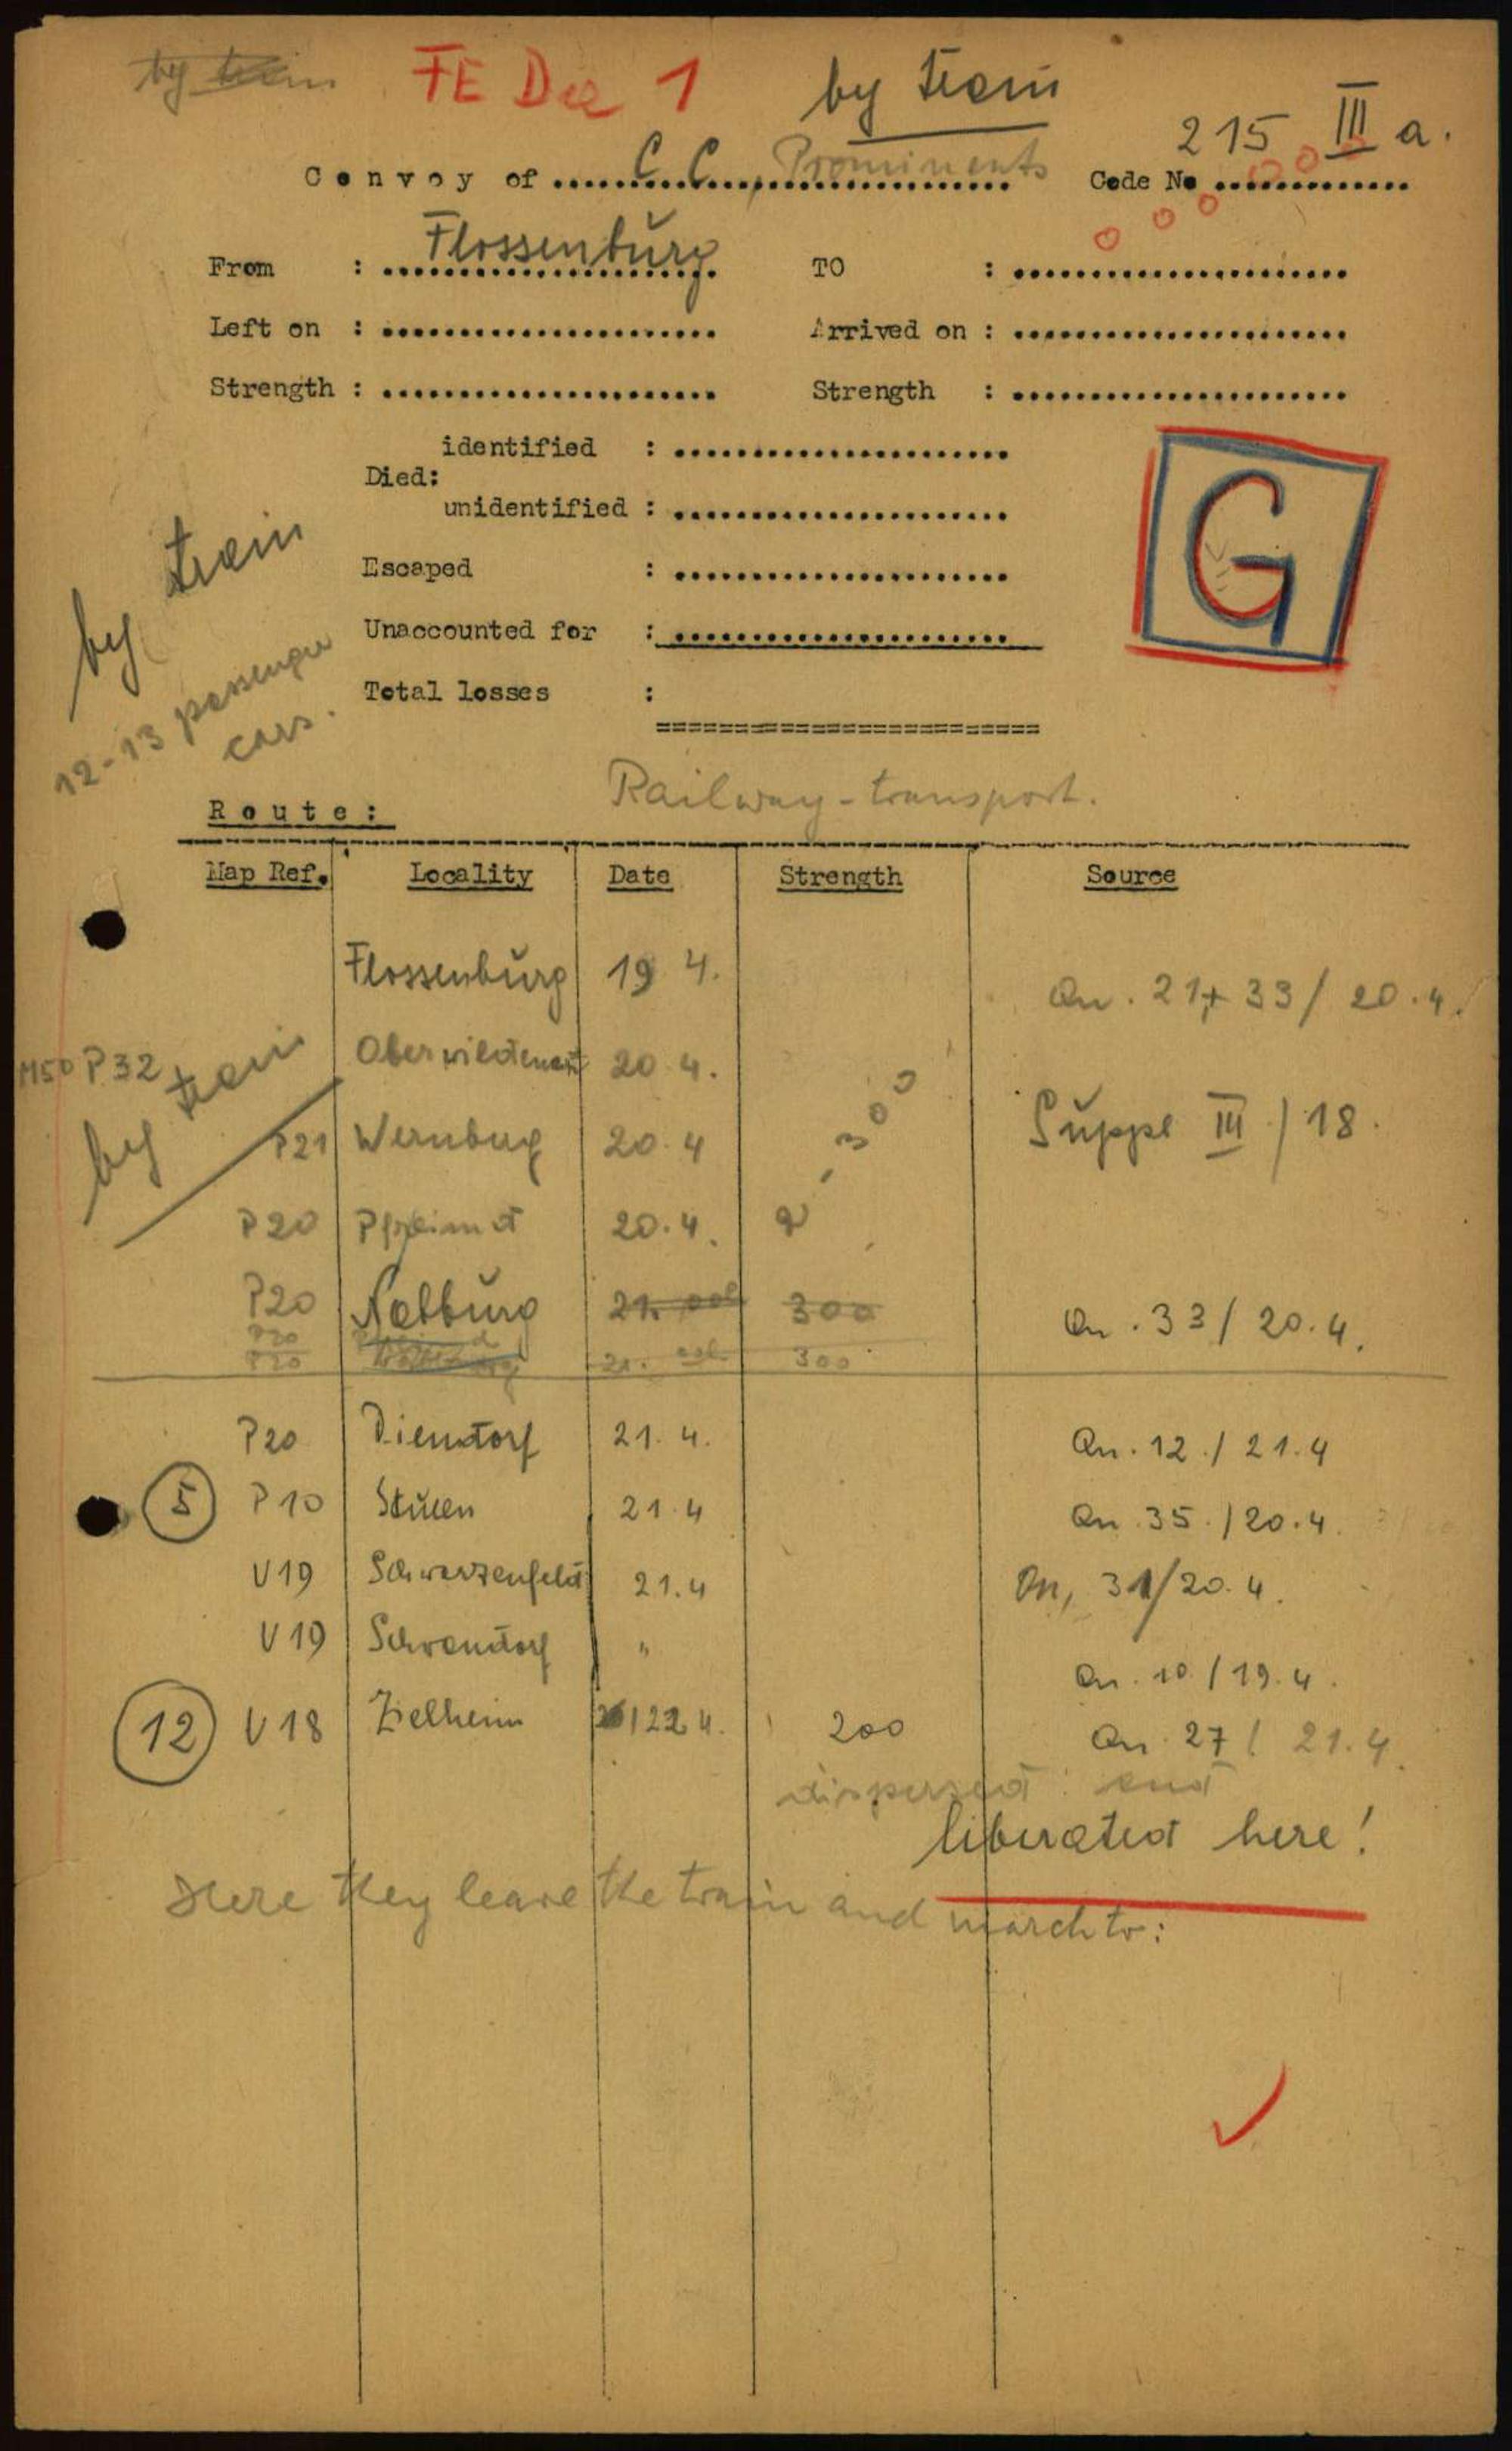 by train FE Dec 1 by train
215 III a.
Convoy of ..... C.C. Prominents ..... Code No ..............
From : Flossenbürg TO : ......................
Left on : ...................... Arrived on : ......................
Strength : ...................... Strength : ......................
identified : ......................
Died:
unidentified : ......................
G
Escaped : ......................
by train
Unaccounted for : ......................
12-13 passenger
cars.
Total losses :
=========================
Railway-transport.
Route:
Map Ref. Locality Date Strength Source
Flossenbürg 19 4. Qu. 21+33/20.4.
M50 P32 20.4.
by train
Suppl III / 18.
P21 Wernberg 20.4
P20 Pfreimdt 20.4. 2-300
P20 Nabburg 21. 300 Qu. 33/20.4.
P20 21. 300
P20 Diendorf 21.4. Qu. 12./21.4
5 P10 Stulln 21.4 Qu. 35./20.4.
V19 Schwarzenfeld 21.4 Qu, 31/20.4.
V19 Schwandorf "
Qu. 10./19.4.
12 V18 22 4. 200 Qu. 27/21.4.
dispersed and
liberated here!
Here they leave the train and march to: